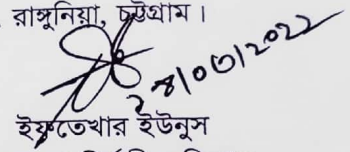 রাঙ্গুনিয়া, চট্টগ্রাম।
২৪/০৩/২০২২
ইফতেখার ইউনুস